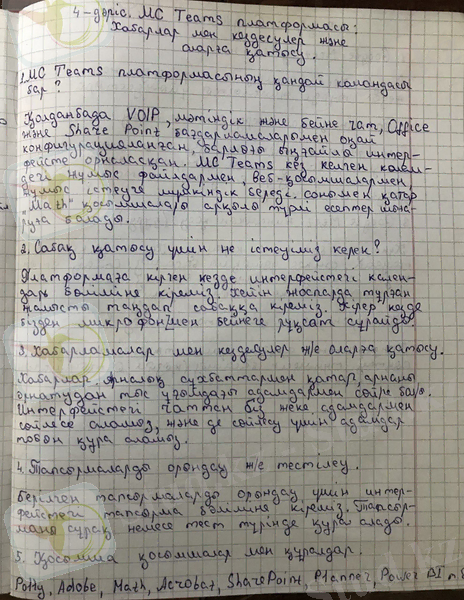 4-дәріс. MC Teams платформасы:
Хабарлар мен кездесулер және
оларға қатысу.
1. MC Teams платформасының қандай командасы
бар?
Қолданбада VOIP, мәтіндік және бейне чат, Office
және Share Point бағдарламаларымен оңай
конфигурацияланған, барлығы ыңғайлы интер-
фейсте орналасқан. MC Teams кез келген көлем-
дегі жұмыс файлдармен веб-қосымшалармен
жұмыс істеуге мүмкіндік береді. сонымен қатар
"Math" қосымшалары арқылы түрлі есептер шыға-
руға болады.
2. Сабақ қатысу үшін не істеуіміз керек?
Платформаға кірген кезде интерфейстегі кален-
дарь бөліміне кіреміз. Кейін жоспарда тұрған
жалысты таңдап сабаққа кіреміз. Кірер кезде
бізден микрофон мен бейнеге рұқсат сұрайды.
3. Хабарламалар мен кездесулер ж/е оларға қатысу.
Хабарлар арналық сұхбаттармен қатар, арнаны
орнатудан тыс ұғымдағы адамдармен сөйлесе
Интерфейстегі чаттан біз жеке адамдармен
сөйлесе аламыз, және де сөйлесу үшін адамдар
тобын құра аламыз.
4. Тапсырмаларды орындау ж/е тестілеу.
Берілген тапсырмаларды орындау үшін интер-
фейстегі тапсырма бөліміне кіреміз. Тапсыр-
маны сұрақ немесе тест түрінде құра алады.
5. Қосымша қосымшалар мен құралдар.
Polly, Adobe, Math, Acrobat, SharePoint, Planner, Power BI т.б